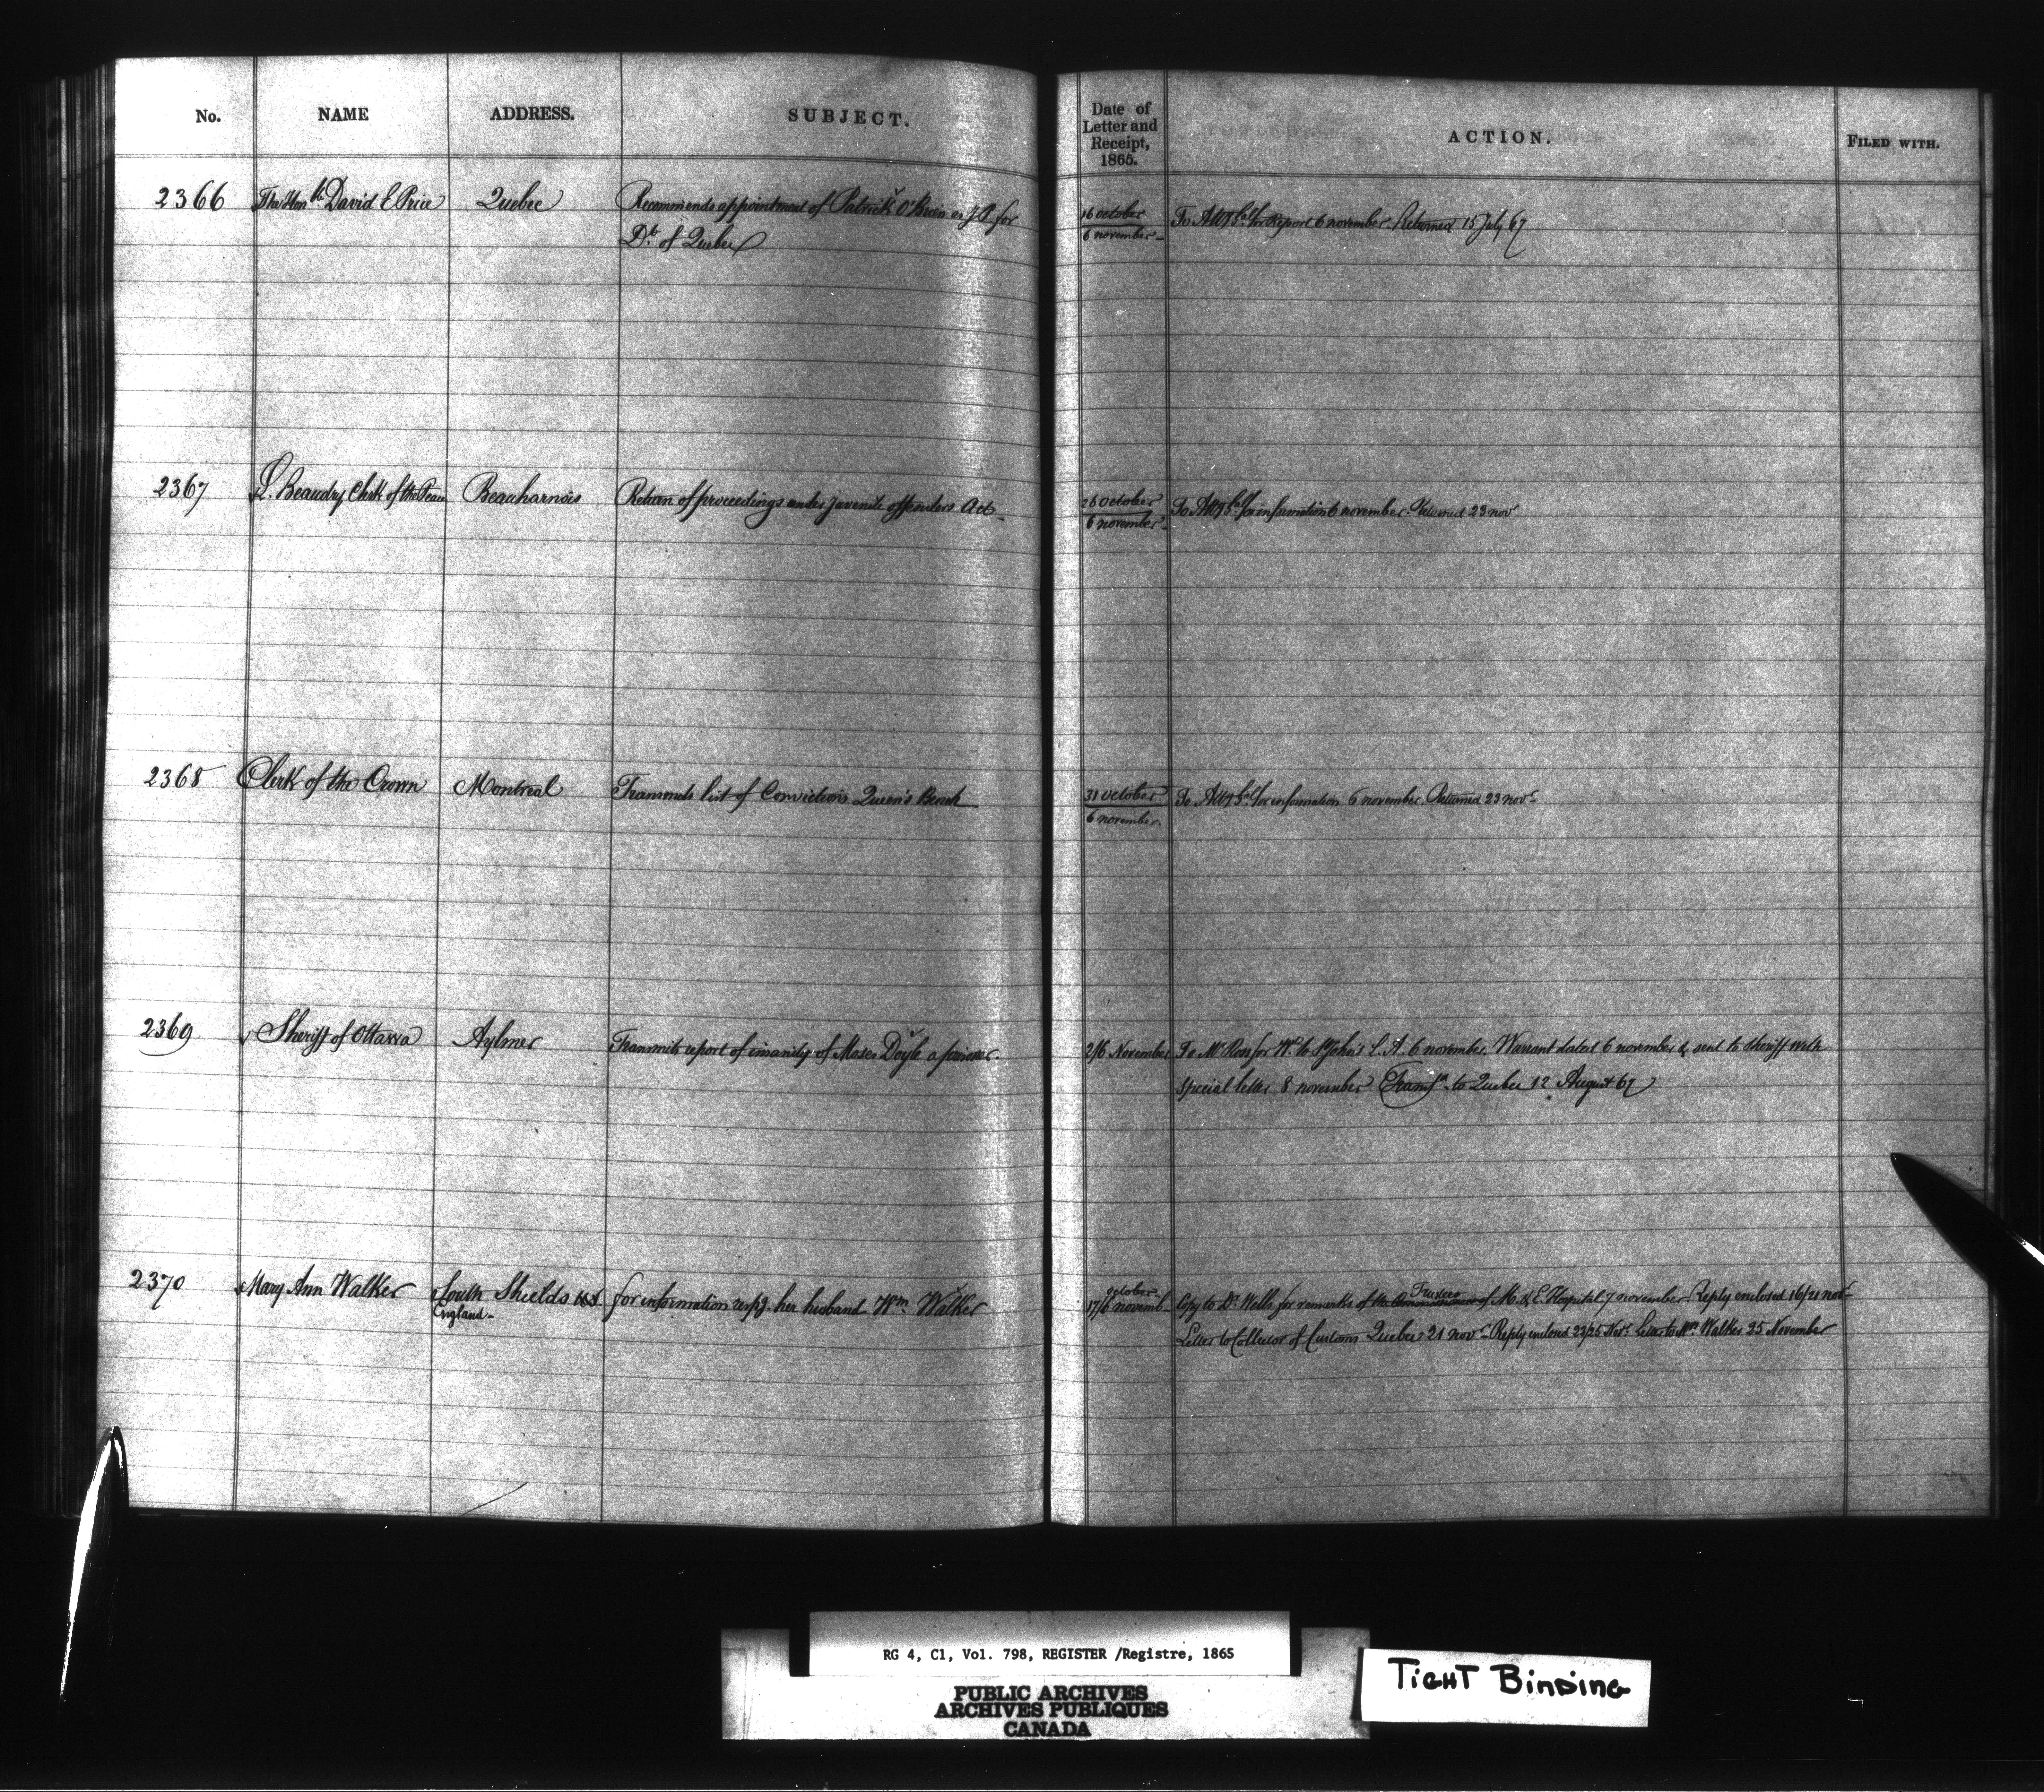 No. NAME ADDRESS. SUBJECT.
Date of Letter and Receipt, 1865. ACTION. FILED WITH.
2366 The Honble David E Price Quebec Recommends appointment of Patrick O'Brien as J.P. for
Dt. of Quebec
16 October
6 november To Atty Gal for Report 6 november. Returned 15 July 67
2367 L. Beaudry Clerk of the Peace Beauharnois Return of proceedings under juvenile offenders Act.
26 October
6 november To Atty Gal for information 6 november. Returned 23 nov
2368 Clerk of the Crown Montreal Transmits list of Convictions Queen's Bench
31 October
6 november. To Atty Gal for information 6 november. Returned 23 novr
2369 Sheriff of Ottawa Aylmer Transmits report of insanity of Moses Doyle a prisoner.
2/6 November To Mr Ross for Wt to St John's L. A. 6 november. Warrant dated 6 november & sent to Sheriff with
special letter 8 november Transfd. to Quebec 12 August 67
2370 Mary Ann Walker South Shields
England for information respg. her husband Wm Walker
october
17/6 novemb Copy to Dr. Wells for remarks of the Commissioners Trustees of M. & E. Hospital 7 november. Reply enclosed 16/21 novr
Letter to Collector of Customs Quebec 21 novr Reply enclosed 23/25 Novr. Letter to Mrs. Walker 25 November
RG 4, C1, Vol. 798, REGISTER /Registre, 1865
PUBLIC ARCHIVES
ARCHIVES PUBLIQUES
CANADA
TIGHT BINDING